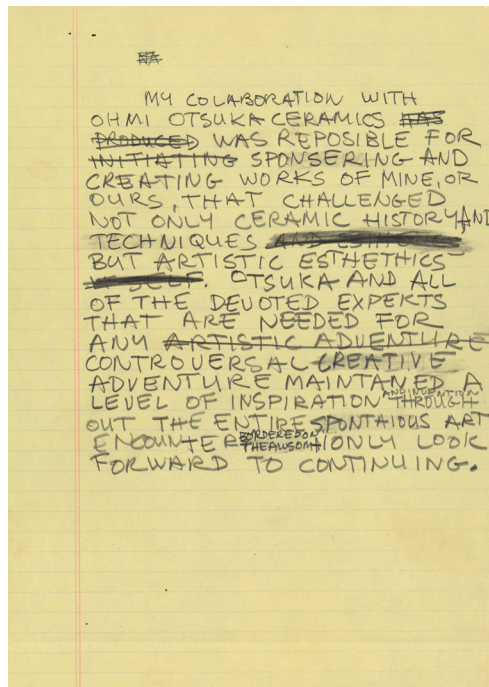 MY COLABORATION WITH
OHMI OTSUKA CERAMICS HAS
PRODUCED WAS REPOSIBLE FOR
INITIATING SPONSERING AND
CREATING WORKS OF MINE, OR
OURS, THAT CHALLENGED
NOT ONLY CERAMIC HISTORY AND
TECHNIQUES
BUT ARTISTIC ESTHETHICS
. OTSUKA AND ALL
OF THE DEVOTED EXPERTS
THAT ARE NEEDED FOR
ANY ARTISTIC ADVENTURE
CONTROVERSAL CREATIVE
ADVENTURE MAINTANED A
LEVEL OF INSPIRATION AND INVENTION THROUGH
OUT THE ENTIRE SPONTAIOUS ART
ENCOUNTER BORDERED ON THE AWSOM I ONLY LOOK
FORWARD TO CONTINUING.